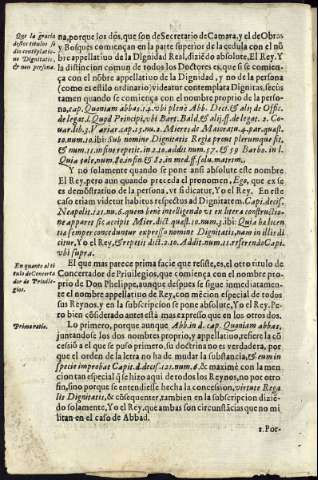 Que la gracia
destos titulos se
dio contẽplatione Dignitatis,
& non personæ.
na, porque los dos, que son de Secretario de Camara, y el de Obras
y Bosques comiençan en la parte superior de la cedula con el nõ
bre appellatiuo de la Dignidad Real, diziẽdo absolute, El Rey. Y
la distincion comun de todos los Doctores es, que si se comien-
ça con el nõbre appellatiuo de la Dignidad, y no de la persona
(como es estilo ordinario) videatur contemplata Dignitas, secùs
tamen quando se comiença con el nombre proprio de la perso-
na, cap. Quoniam abbas. 14. vbi plenè Abb. Deci. & alij de Offic.
de legat. l. Quod Principi, vbi Bart. Bald. & alij. ff. de legat. 2. Co-
uar. lib. 3. Variar. cap. 15. nu. 2. Mieres de Maiorat. 4. par. quæst.
10. num. 10. ibi: Sub nomine Dignitatis Regiæ preut plerumque fit,
& num. 11. in fine repetit. in 2. 2. addit. num. 57. & 59 Barbo. in l.
Quia tale, num. 80. in fin & 10. in med. ff. solu. matrim.
Y no solamente quando se pone ansi absolute este nombre
El Rey, pero aun quando preceda el pronombre, Ego, que ex se
es demostratiuo de la persona, vt si dicatur, Yo el Rey. En este
caso etiam videtur habitus respectus ad Dignitatem. Capi. decis.
Neapolit. 121. nu. 6. quem ita intelligentem ex litera contextu-
ne apparet sic accipit Mier. dict. quæst. 10. num. 3. ibi: Quia hæc in-
tia semper conceduntur expresso nomine Dignitatis, nam in illis di
citur, Yo el Rey, & repetit dict. 2. 10. Addit. num. 11. referendo Capi.
vbi supra.
En quanto al ti
tulo de Concerta-
dor de Priuile-
gios.
El que mas parece prima facie que resiste, es, el otro titulo de
Concertador de Priuilegios, que comiença con el nombre pro-
prio de Don Phelippe, aunque despues se sigue inmediatamen-
te el nombre appellatiuo de Rey, con mẽcion especial de todos
sus Reynos, y en la subscripcion se pone absolute, Yo el Rey. Pe-
ro bien cõsiderado antes està mas expresso que en los otros dos.
Prima ratio.
Lo primero, porque aunque Abb. in d. cap. Quoniam abbas,
juntandose los dos nombres proprio, y appellatiuo, refiera la cõ
cessió a el que se puso primero, su doctrina no es verdadera, por
que el orden de la letra no ha de mudar la substancia, & eum in
specie improbat Capit. d. decis. 121. num. 6. & maximè con la men
cion tan especial q̃ se hizo aqui de todos los Reynos, no por otro
fin, sino porque se entendiesse hecha la concession, virtute Rega
lis Dignitatis, & cõsequenter, tambien en la subscripcion diziẽ-
do solamente, Yo el Rey, que ambas son circunstãcias que no mi
litan en el caso de Abbad.
1. Por-